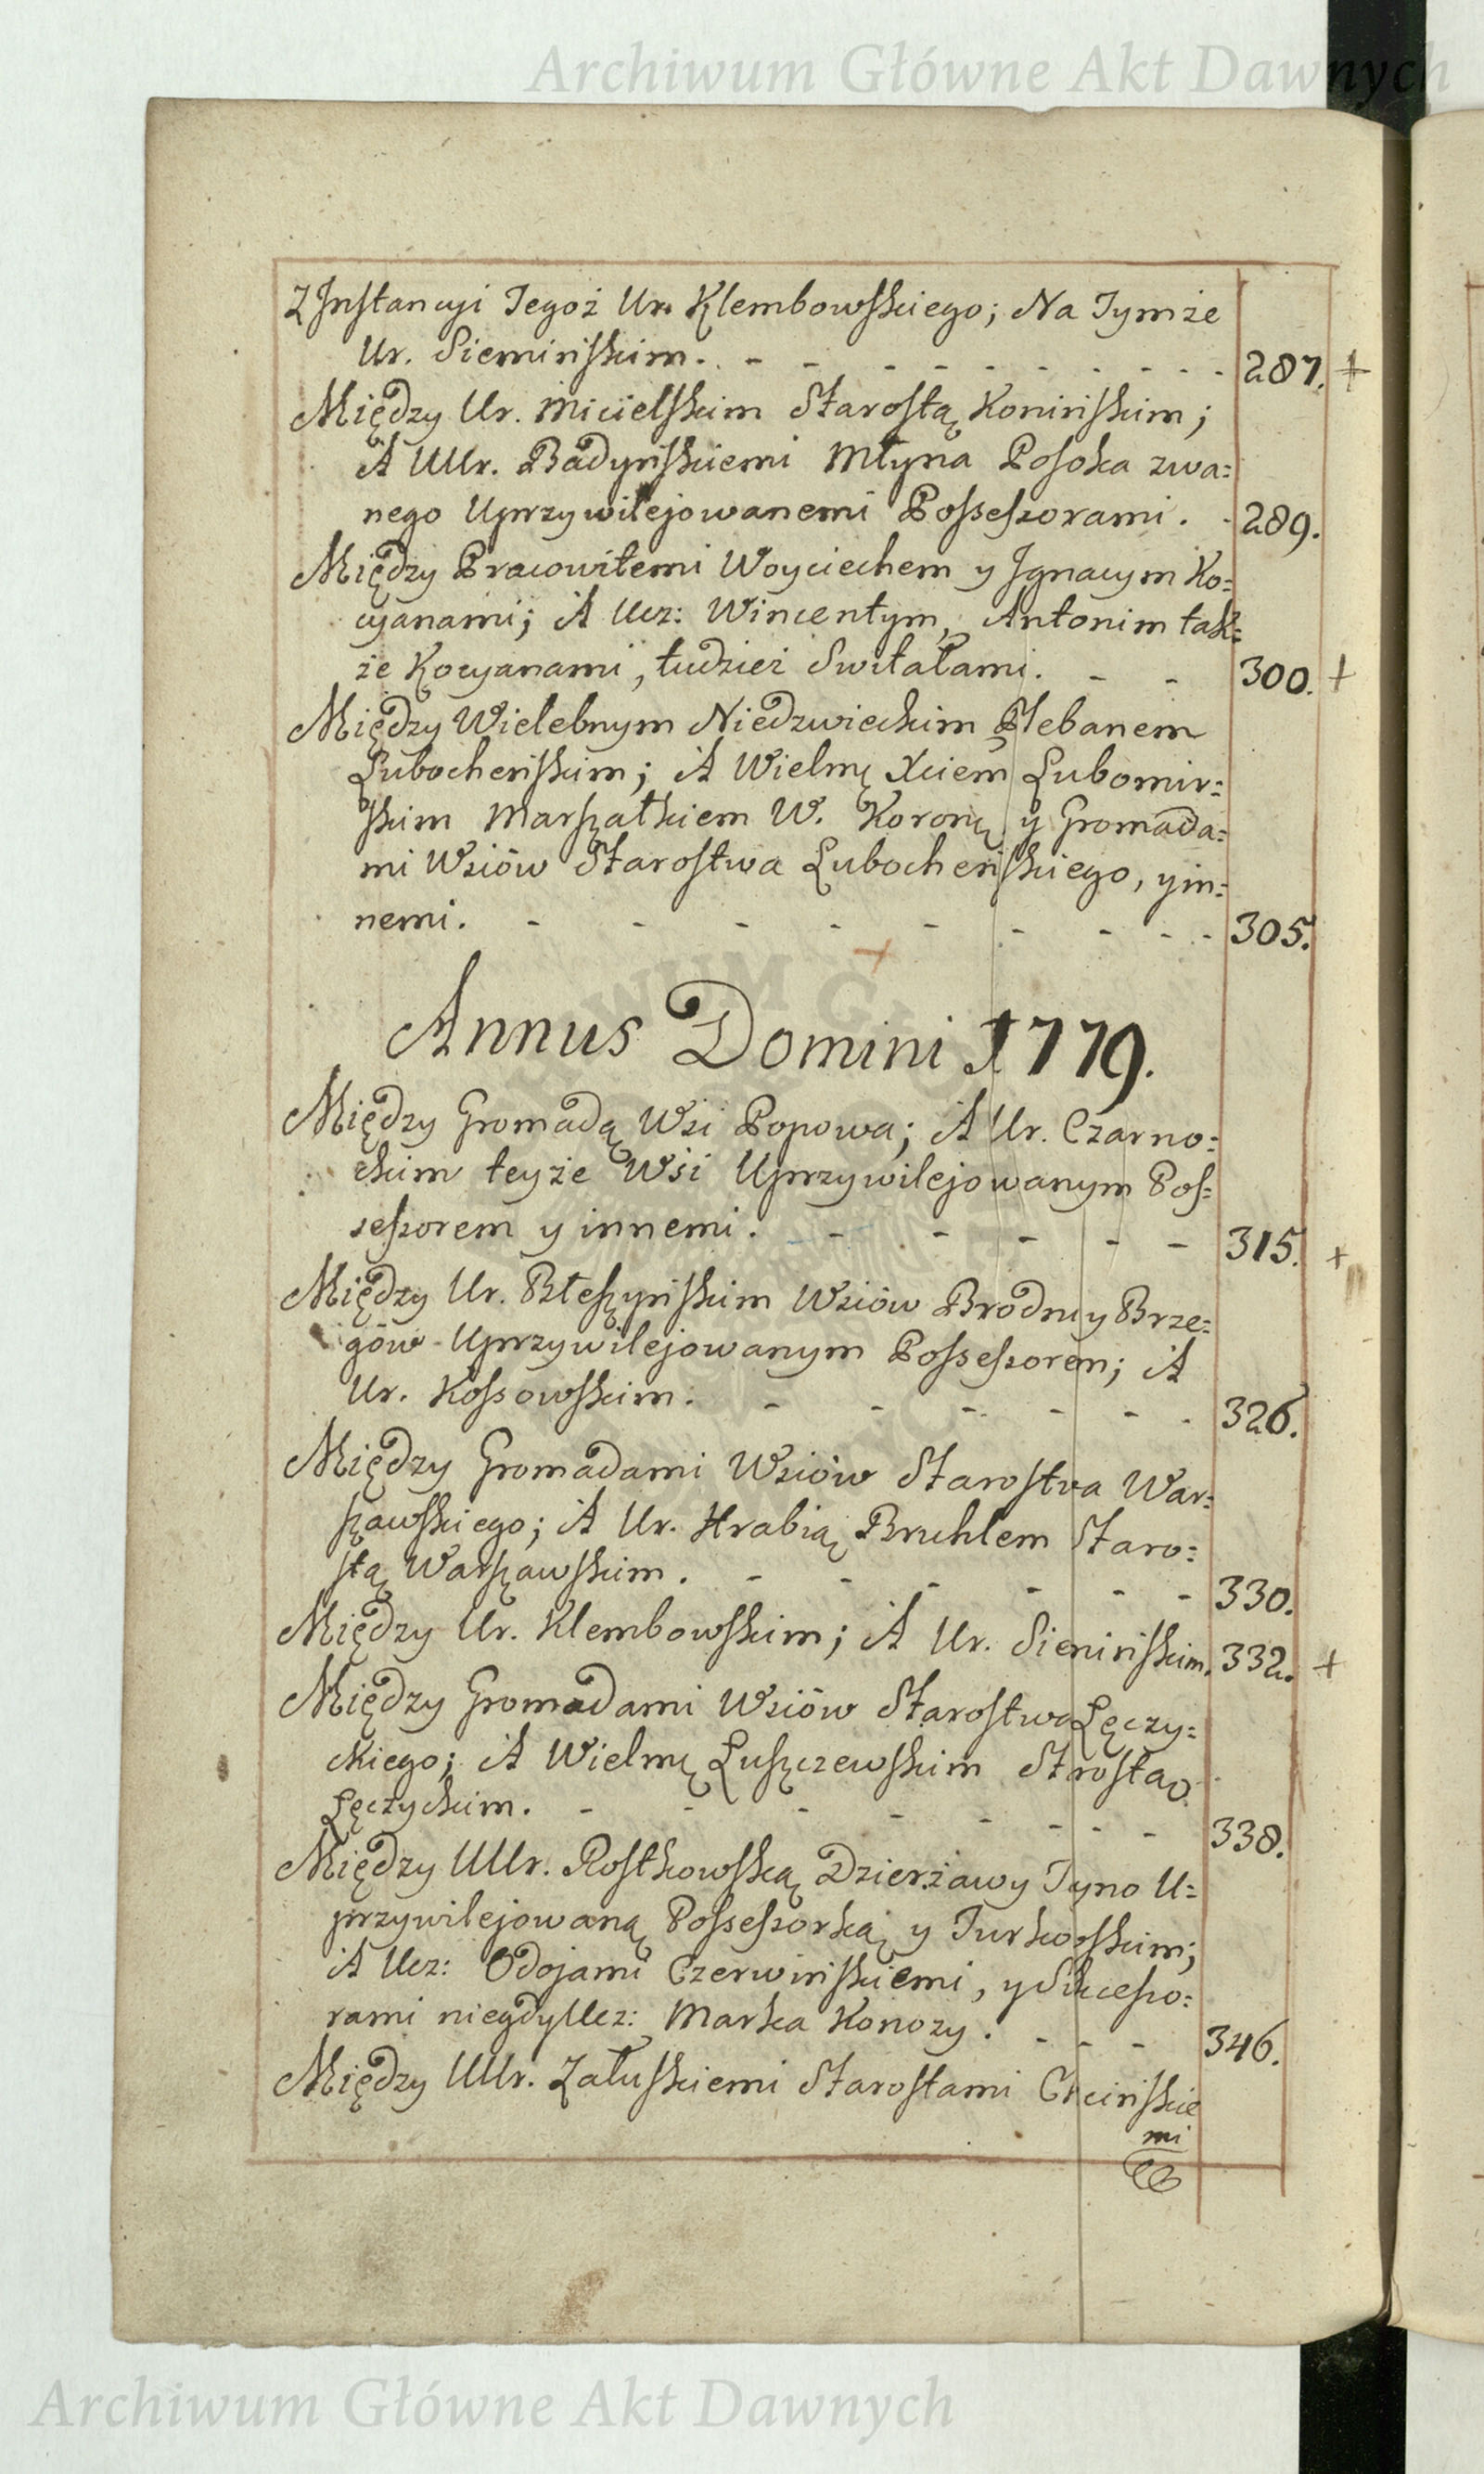 Archiwum Główne Akt Dawnych
Z Instancyi Tegoż Ur. Klembowskiego; Na Tymże
Ur. Siemińskim. 287. +
Między Ur. Micielskim Starostą Konińskim;
A UUr. Badyńskiemi Młyna Posoka zwa=
nego Uprzywilejowanemi Possessorami. 289.
Między Pracowitemi Woyciechem y Ignacym Ko=
cyanami; A Ucz: Wincentym, Antonim tak=
że Kocyanami, tudzież Switałami. 300. +
Między Wielebnym Niedzwieckim Plebanem
Lubocheńskim; A Wielmę Xciem Lubomir=
skim Marszałkiem W. Koronę y Gromada=
mi Wsiów Starostwa Lubocheńskiego, y in=
nemi. 305.
+
Annus Domini 1779.
Między Gromadą Wsi Popowa; A Ur. Czarno=
ckim teyże Wsi Uprzywilejowanym Pos=
sessorem y innemi. 315. +
Między Ur. Błeszyńskim Wsiów Brodni y Brze=
gów Uprzywilejowanym Possessorem; A
Ur. Kossowskim. 326.
Między Gromadami Wsiów Starostwa War=
szawskiego; A Ur. Hrabią Bruhlem Staro=
stą Warszawskim. 330.
Między Ur. Klembowskim; A Ur. Sieminskim. 332. +
Między Gromadami Wsiów Starostwa Łęczy=
ckiego; A Wielmę Luszczewskim Strostą
Łęczyckim. 338.
Między UUr. Rostkowską Dzierżawy Tyno U=
przywilejowaną Possessorką y Turkoskim;
A Ucz: Odojami Czerwińskiemi, y Sukcesso=
rami niegdy Ucz: Marka Konozy. 346.
Między UUr. Załuskiemi Starostami Chcińskie
mi
Archiwum Główne Akt Dawnych